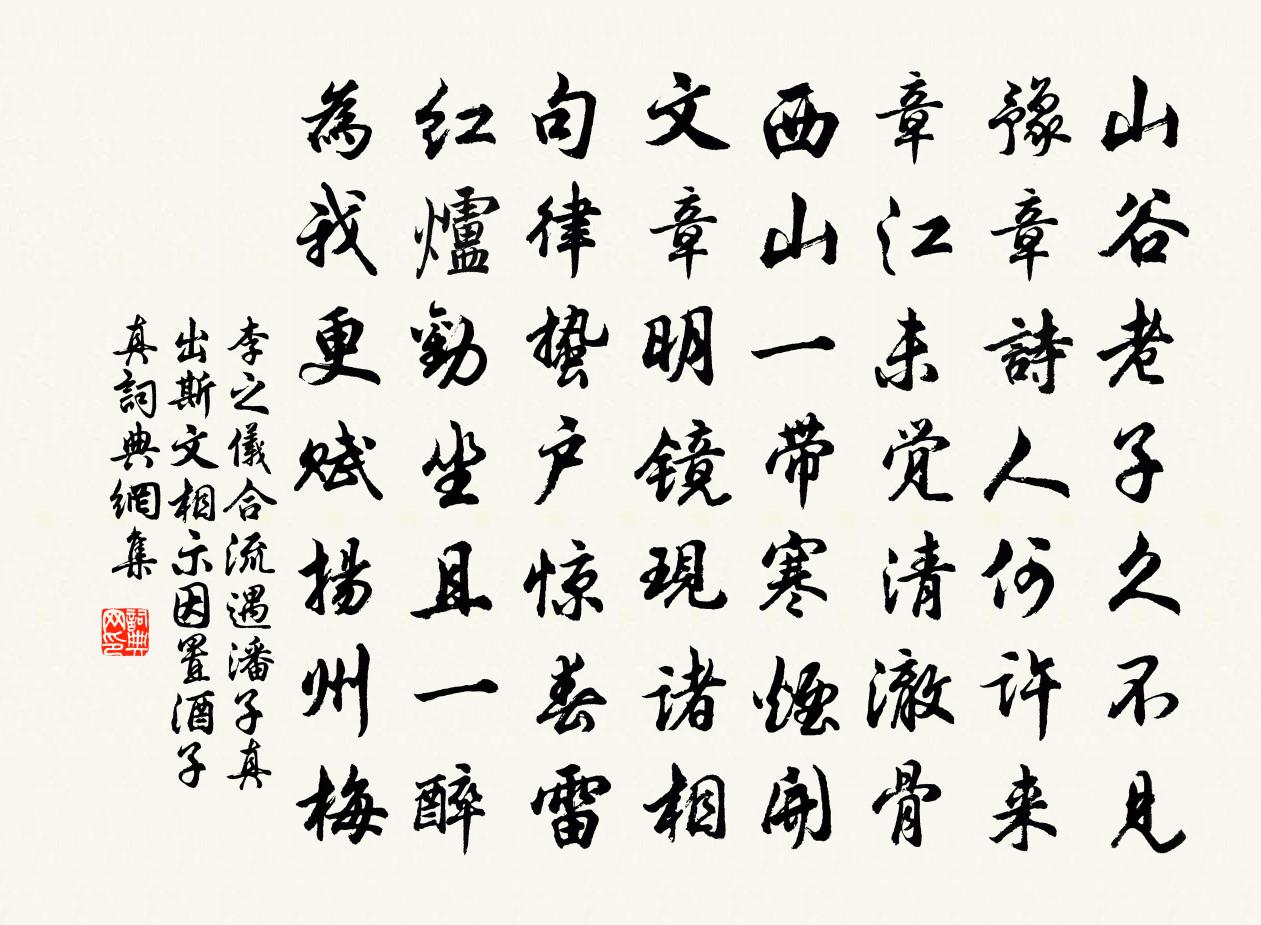 山谷老子久不見
豫章詩人何許来
章江未觉清澈骨
西山一带寒煙開
文章明镜現諸相
句律蛰户惊春雷
红爐勸坐且一醉
為我更赋揚州梅
李之儀合流遇潘子真
出斯文相示因置酒子
真詞典網集
詞典
网印